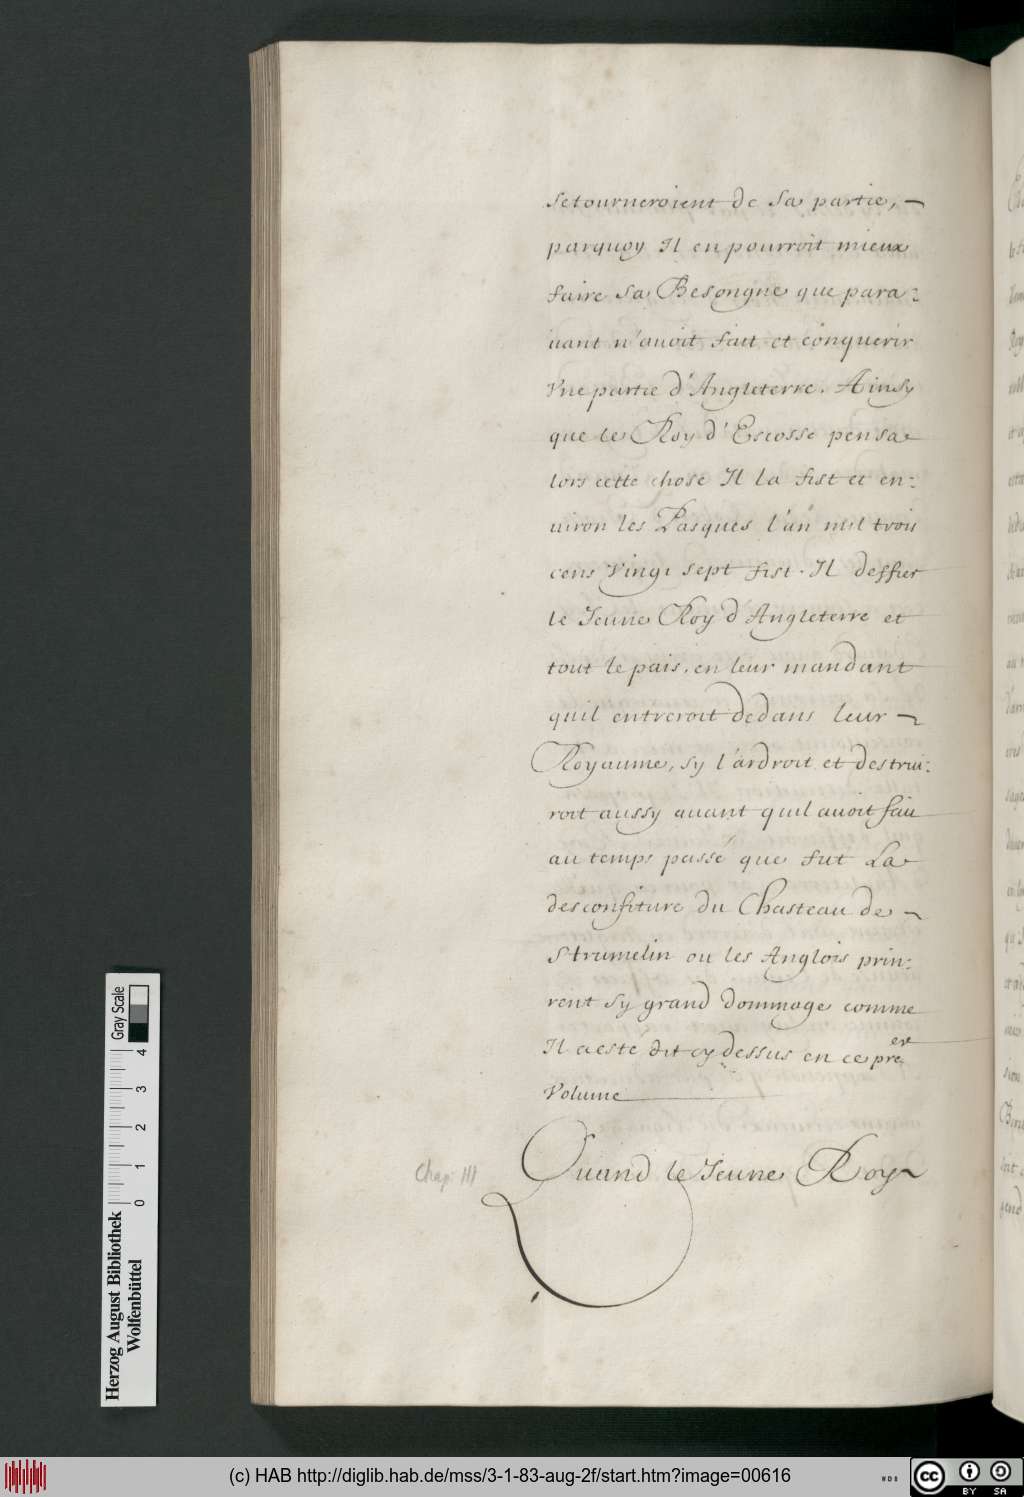 setourneroient de sa partie,
parquoy Il en pourroit mieux
faire sa Besongne que para:
uant n'auoit fait et conquerir
vne partie d'Angleterre. Ainsy
que le Roy d'Escosse pensa
lors cette chose Il la fist et en:
uiron les Pasques l'an mil trois
cens vingt sept fist. Il deffier
le Jeune Roy d'Angleterre et
tout le pais, en leur mandant
quil entreroit dedans leur
Royaume, sy l'ardroit et destrui:
roit aussy auant quil auoit fait
au temps passé que fut La
desconfiture du Chasteau de
Strumelin ou les Anglois prin:
rent sy grand dommage comme
Il a esté dit cy dessus en ce pre er
volume
Chap. III
Quand le Jeune Roy
Herzog August Bibliothek
Wolfenbüttel
0 1 2 3 4
Gray Scale
(c) HAB http://diglib.hab.de/mss/3-1-83-aug-2f/start.htm?image=00616
WDB
cc BY SA